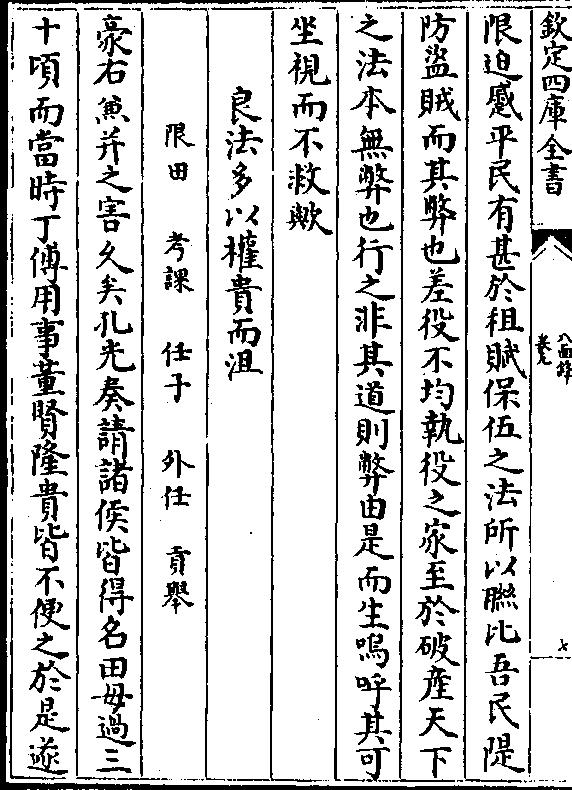 欽定四庫全書
八面鋒
卷九
七
限迫蹙平民有甚於租賦保伍之法所以聯比吾民隄
防盜賊而其弊也差役不均執役之家至於破產天下
之法本無弊也行之非其道則弊由是而生嗚呼其可
坐視而不救歟
良法多以權貴而沮
限田 考課 任子 外任 貢舉
豪右兼并之害久矣孔光奏請諸侯皆得名田毋過三
十頃而當時丁傅用事董賢隆貴皆不便之於是遂